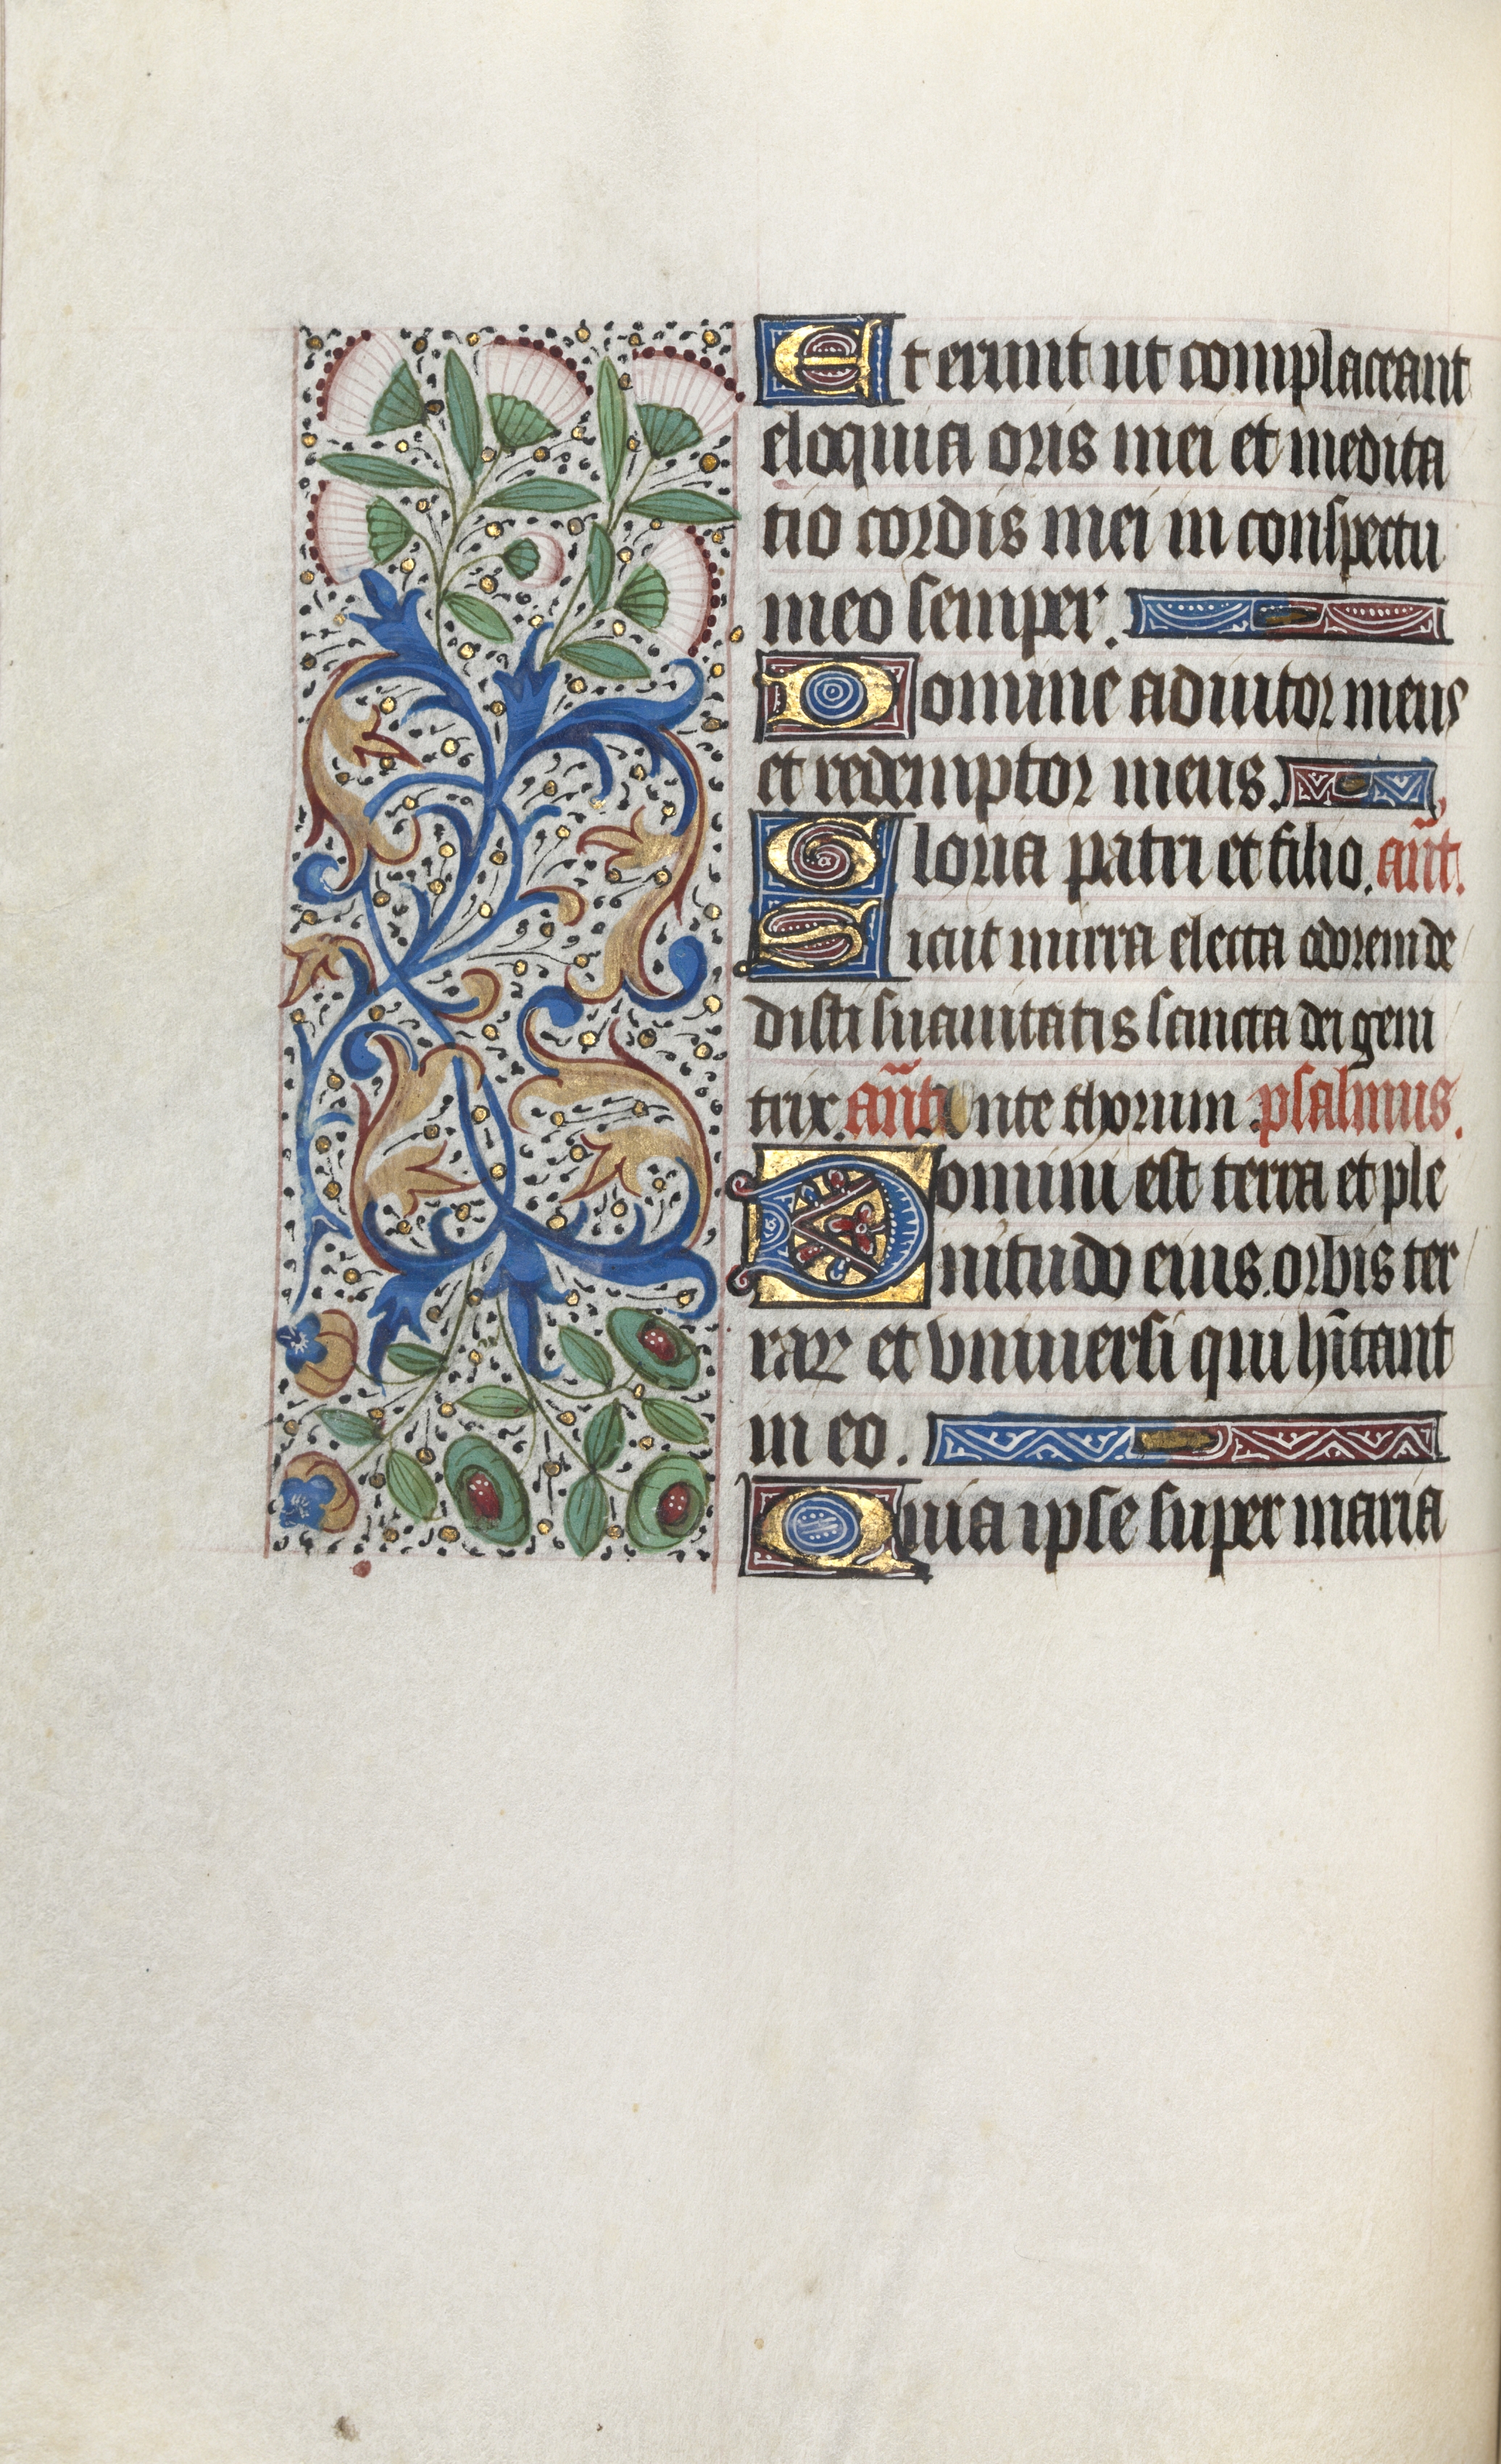 Et erunt ut complaceant
eloquia oris mei et medita
tio cordis mei in conspectu
meo semper.
Domine adiutor meus
et redemptor meus.
Gloria patri et filio. an̄t.
Sicut mirra electa odorem de
disti suauitatis sancta dei geni
trix. an̄t. Ante thorum. psalmus.
Domini est terra et ple
nitudo eius. orbis ter
raꝝ et vniuersi qui hītant
in eo.
Quia ipse super maria